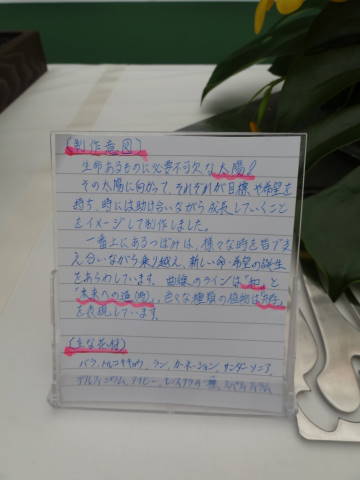 【制作意図】
生命あるものに必要不可欠な太陽!
その太陽に向かって、それぞれが目標や希望を
持ち、時には助け合いながら成長していくこと
をイメージして制作しました。
一番上にあるつぼみは、様々な時を皆で支
え合いながら乗り越え、新しい命・希望の誕生
をあらわしています。曲線のラインは"和"と
"未来への道(町)"、色々な種類の植物は
を表現しています。
【主な花材】
バラ、トルコキキョウ、ラン、カーネーション、サンダーソニア、
デルフィニウム